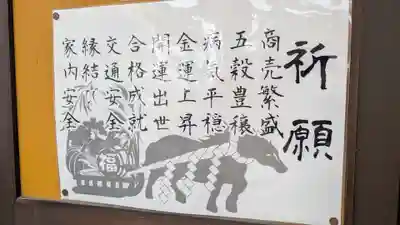 祈願
商売繁盛
五穀豊穣
病気平穏
金運上昇
開運出世
合格成就
交通安全
縁結び
家内安全
福